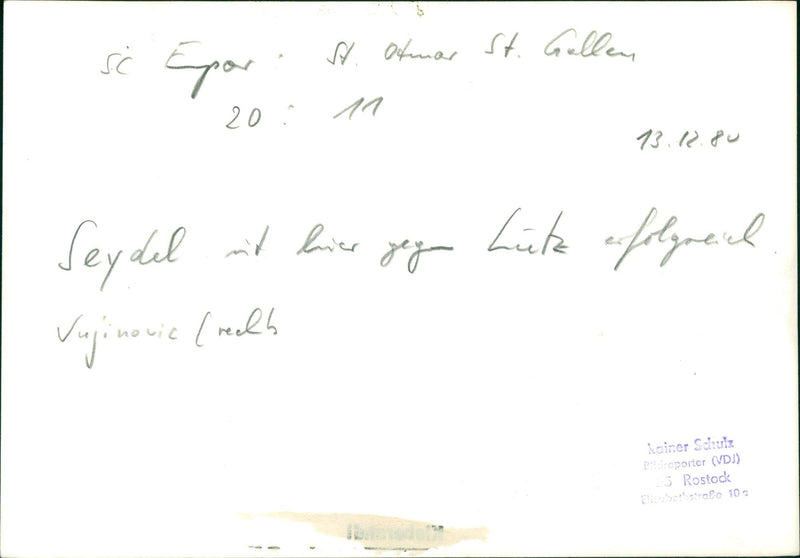 SC Empor : St. Otmar St. Gallen
20 : 11
13.12.80
Seydel ist hier gegen Lutz erfolgreich
Vujinovic (rechts
Rainer Schulz
Bildreporter (VDJ)
25 Rostock
Elisabethstraße 10a
Kleberandl